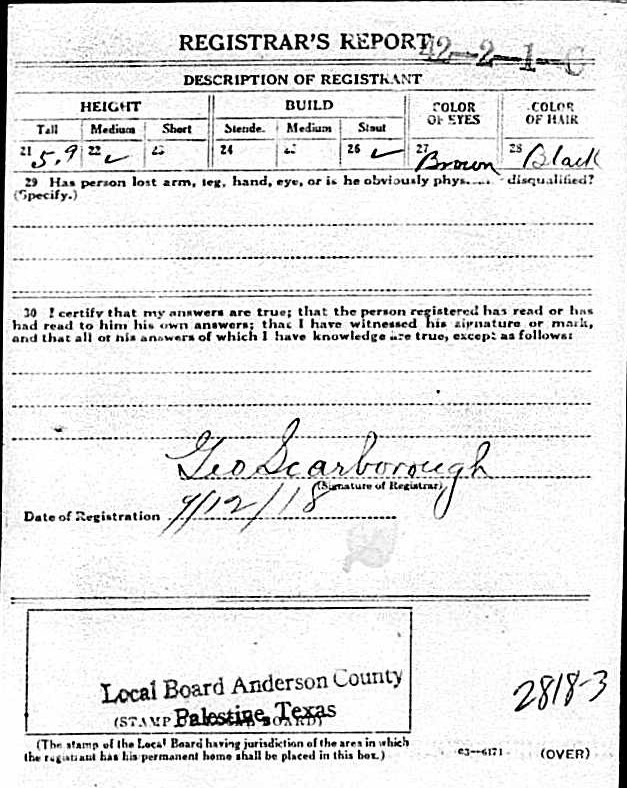 REGISTRAR'S REPORT 42-2-1-C
DESCRIPTION OF REGISTRANT
HEIGHT BUILD COLOR OF EYES COLOR OF HAIR
Tall Medium Short Slender Medium Stout
21 5.9 22 ✓ 23 24 25 26 ✓ 27 Brown 28 Black
29 Has person lost arm, leg, hand, eye, or is he obviously phys... disqualified?
(Specify.)
30 I certify that my answers are true; that the person registered has read or has
had read to him his own answers; that I have witnessed his signature or mark,
and that all of his answers of which I have knowledge are true, except as follows:
Geo Scarborough
(Signature of Registrar)
Date of Registration 9/12/18
Local Board Anderson County
(STAMP OF LOCAL BOARD)
Palestine, Texas
2818-3
(The stamp of the Local Board having jurisdiction of the area in which
the registrant has his permanent home shall be placed in this box.)
03—6171 (OVER)